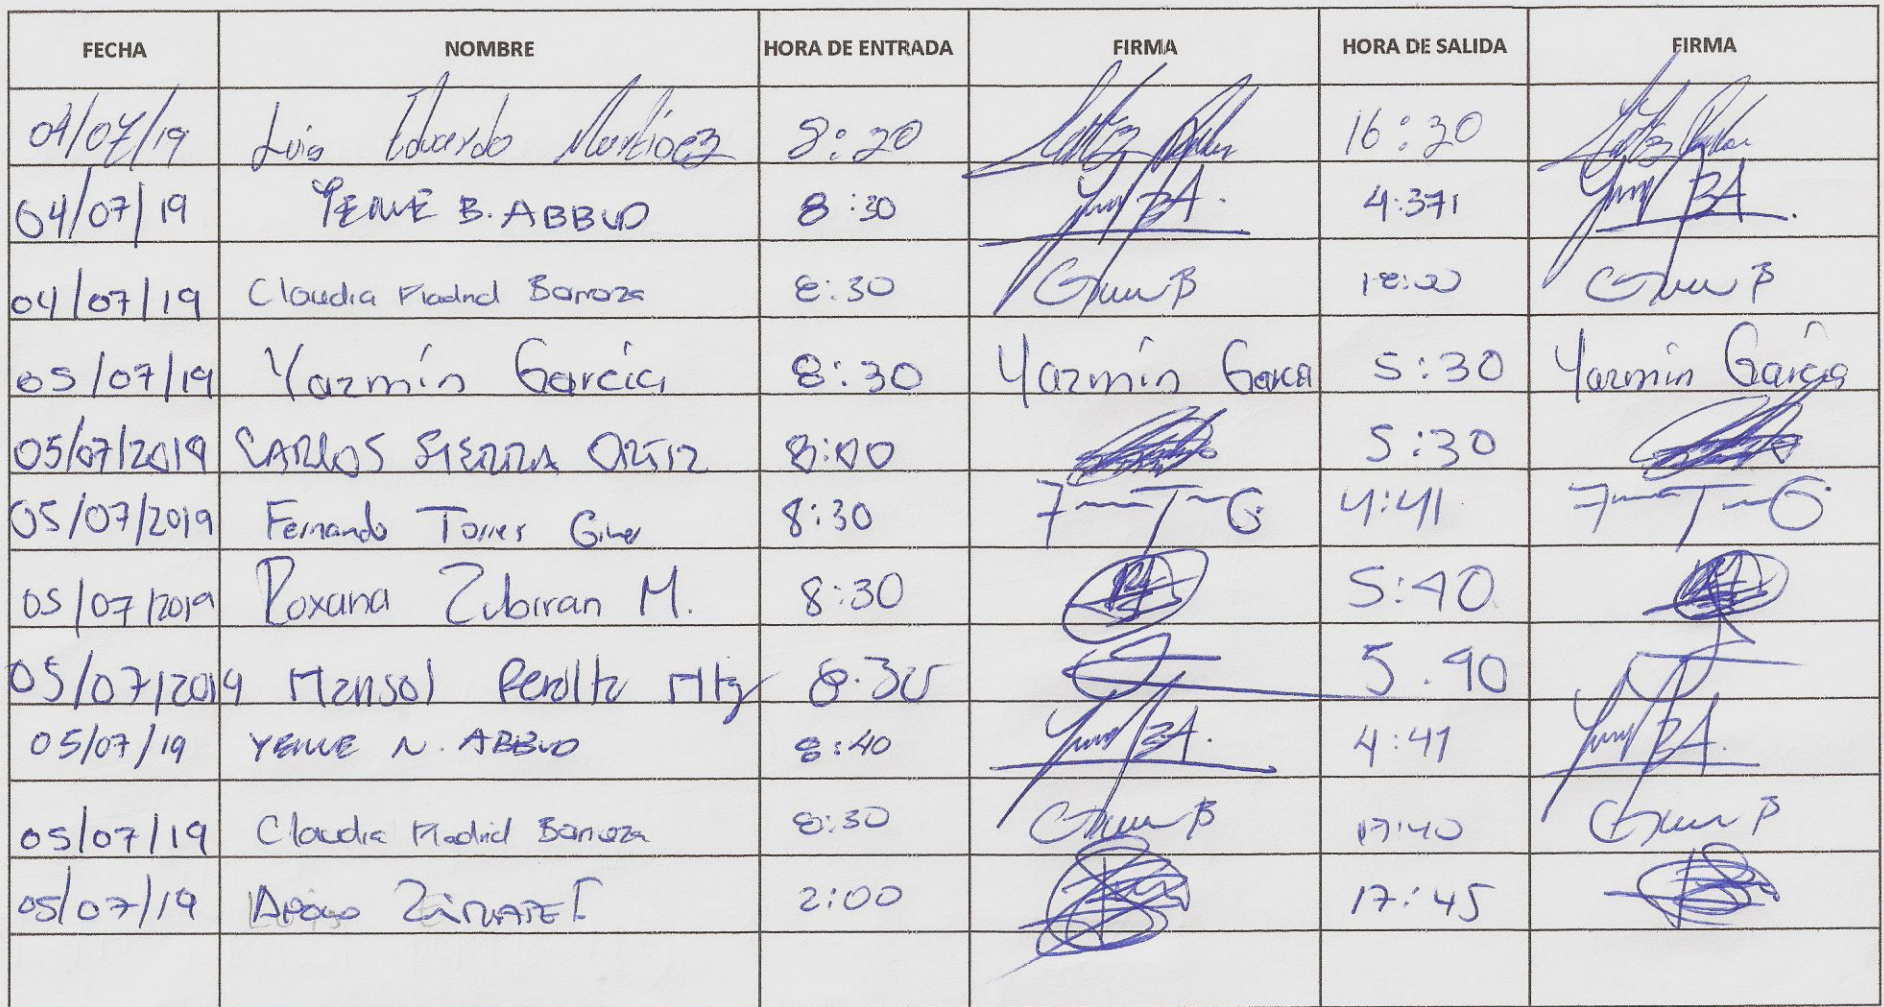 FECHA NOMBRE HORA DE ENTRADA FIRMA HORA DE SALIDA FIRMA
04/07/19 Luis Eduardo Martínez 8:20 16:30
04/07/19 YEMILE B. ABBUD 8:30 4:371
04/07/19 Claudia Madrid Barraza 8:30 18:00
05/07/19 Yazmín García 8:30 Yazmín García 5:30 Yazmin García
05/07/2019 CARLOS SIERRA ORTIZ 8:00 5:30
05/07/2019 Fernando Torres 8:30 F T G 4:41 F T G
05/07/2019 Roxana Zubiran M. 8:30 5:40
05/07/2019 Marisol Peralta Mtz 8.30 5.40
05/07/19 YEMILE N. ABBUD 8:40 4:41
05/07/19 Claudia Madrid Barraza 8:30 17:40
05/07/19 ZÁRATE 2:00 17:45